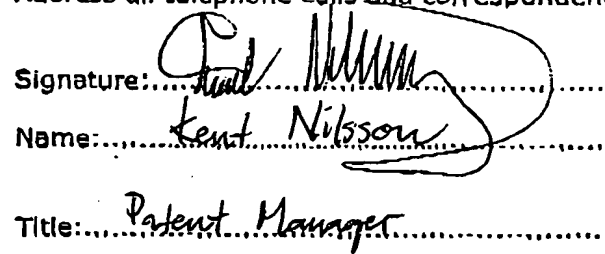 Address all telephone calls and corresponden
Signature:
Name: Kent Nilsson
Title: Patent Manager